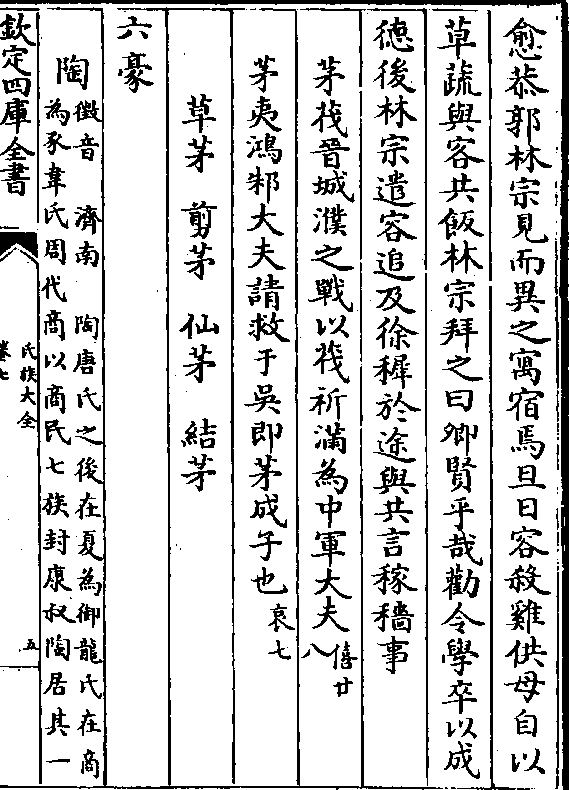 愈恭郭林宗見而異之寓宿焉旦日容殺雞供母自以
草蔬與容共飯林宗拜之曰卿賢乎哉勸令學卒以成
徳後林宗遣容追及徐穉於途與共言稼穡事
茅茷晉城濮之戰以茷祈滿為中軍大夫僖廿八
茅夷鴻邾大夫請救于吳即茅成子也哀七
草茅 剪茅 仙茅 結茅
六豪
陶徵音 濟南 陶唐氏之後在夏為御龍氏在商
為豕韋氏周代商以商民七族封康叔陶居其一
欽定四庫全書
氏族大全
卷七
五